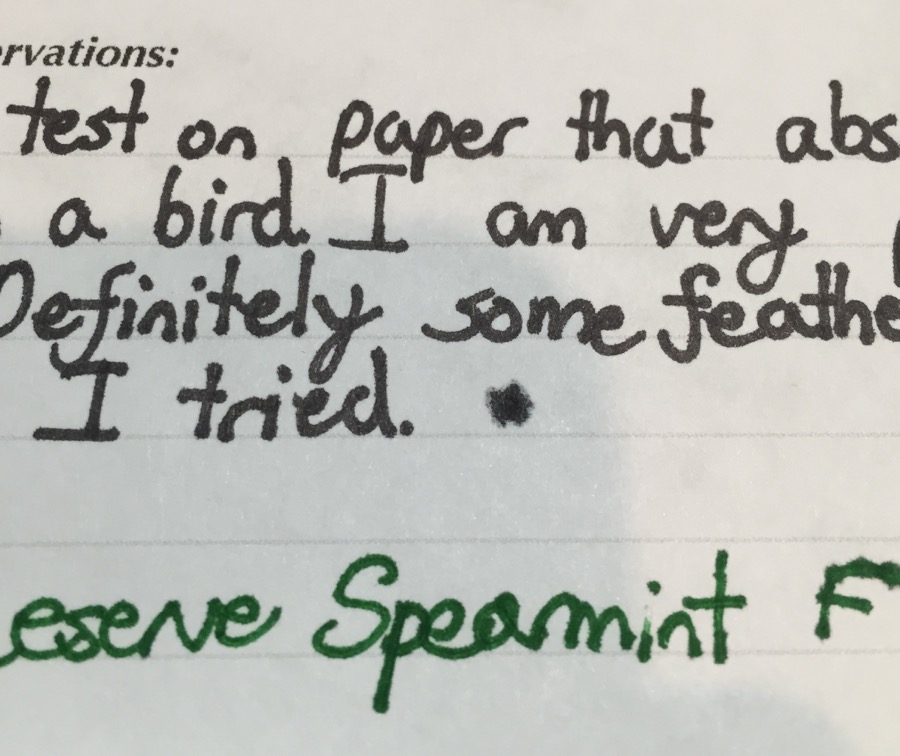 ervations:
test on paper that abs
a bird. I am very
Definitely some feathe
I tried.
eserve Spearmint F